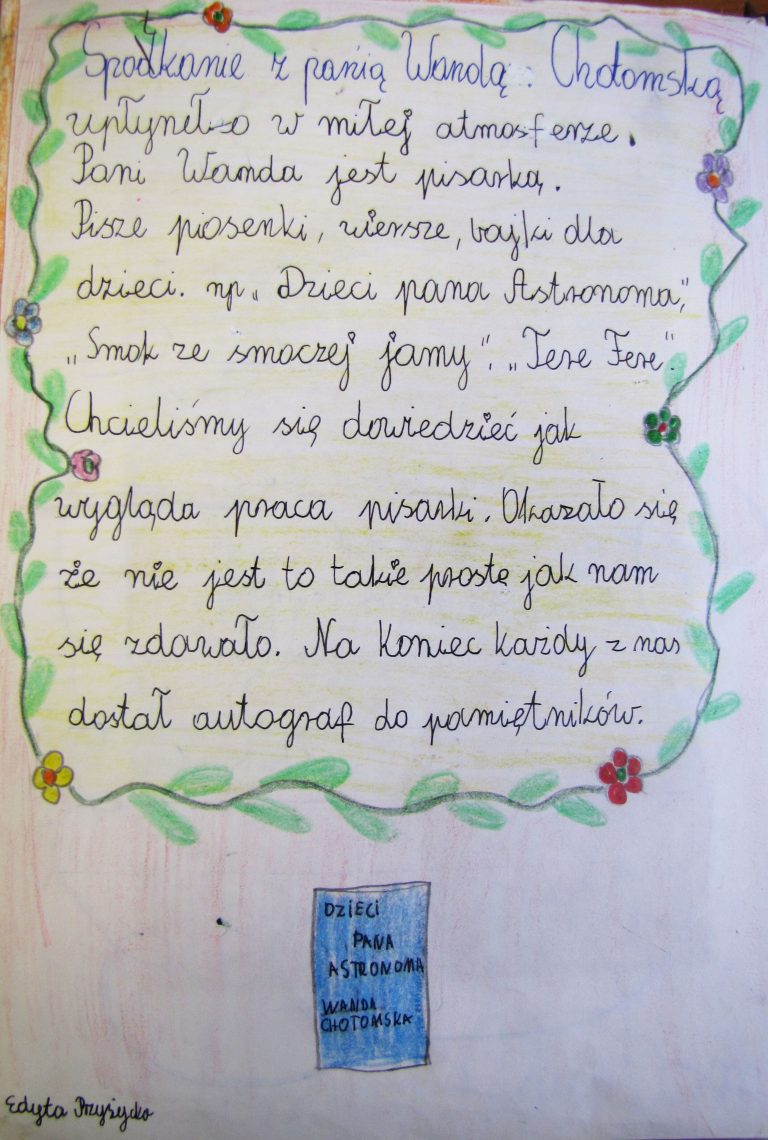 Spotkanie z panią Wandą Chotomską
upłynęło w miłej atmosferze.
Pani Wanda jest pisarką.
Pisze piosenki, wiersze, bajki dla
dzieci. np. „Dzieci pana Astronoma”,
„Smok ze smoczej jamy”. „Tere Fere”.
Chcieliśmy się dowiedzieć jak
wygląda praca pisarki. Okazało się
że nie jest to takie proste jak nam
się zdawało. Na koniec każdy z nas
dostał autograf do pamiętników.
DZIECI
PANA
ASTRONOMA
WANDA
CHOTOMSKA
Edyta